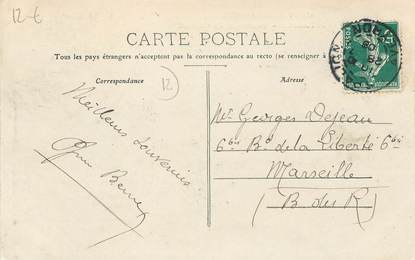 12-€
CARTE POSTALE
Tous les pays étrangers n'acceptent pas la correspondance au recto (se renseigner
Correspondance
Adresse
12
Meilleurs souvenirs
Mr Georges Dejean
6 bis Bd de la Liberté 6 bis
Marseille
(B. du R)